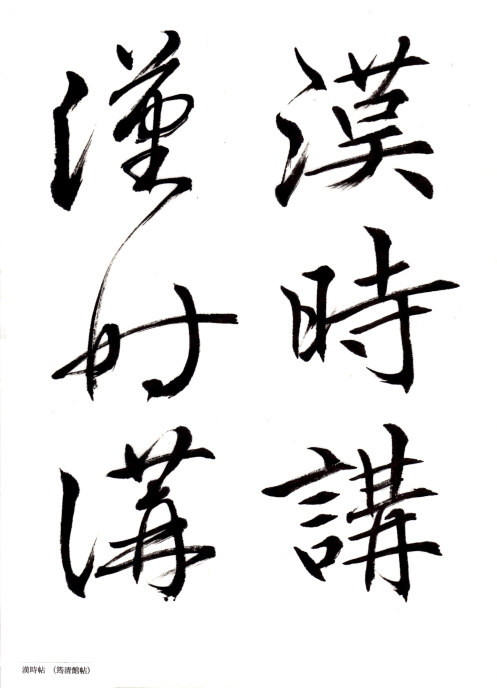 漢時講
漢時講
漢時帖 (筠清館帖)